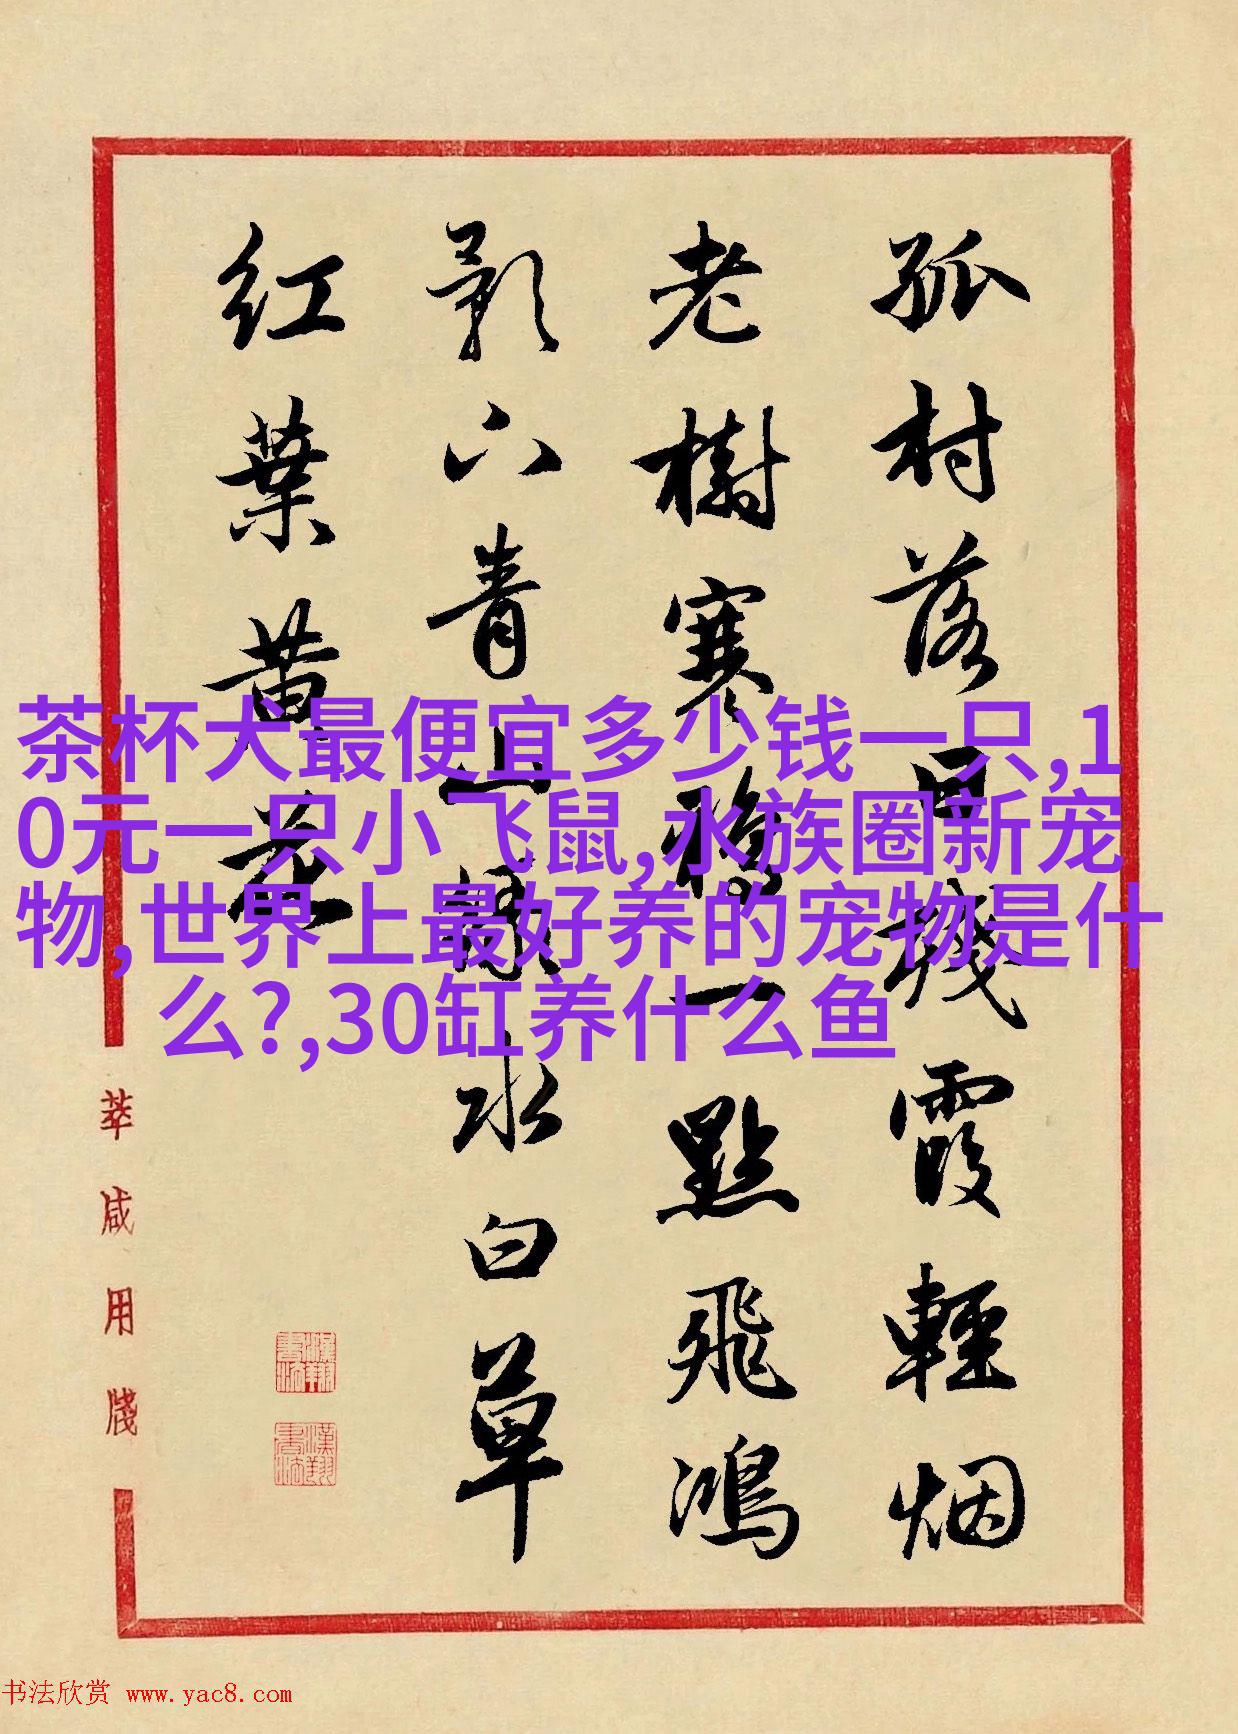 孤村落日殘霞輕烟
老樹寒鴉一點飛鴻
影下青山綠水白草
红葉黄花
茶杯犬最便宜多少钱一只,1
0元一只小飞鼠,水族圈新宠
物,世界上最好养的宠物是什
么?,30缸养什么鱼
莘咸用牋
书法欣赏 www.yac8.com